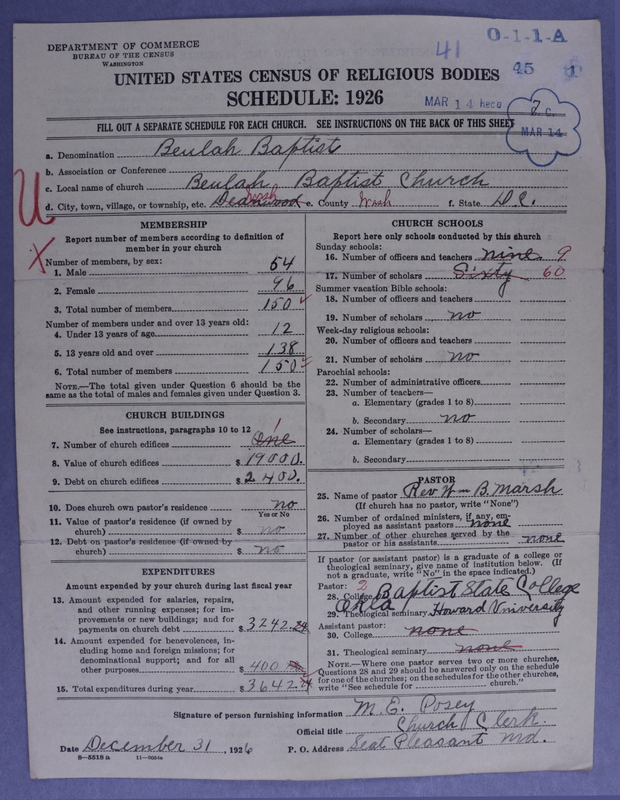 DEPARTMENT OF COMMERCE
BUREAU OF THE CENSUS
WASHINGTON
41
O-1-1-A
45 1
UNITED STATES CENSUS OF RELIGIOUS BODIES
SCHEDULE: 1926
MAR 14 RECD
2 c.
MAR 14
FILL OUT A SEPARATE SCHEDULE FOR EACH CHURCH. SEE INSTRUCTIONS ON THE BACK OF THIS SHEET
a. Denomination Beulah Baptist
b. Association or Conference
c. Local name of church Beulah Baptist Church
U
d. City, town, village, or township, etc. Deanwood Wash e. County Wash f. State D.C.
MEMBERSHIP
Report number of members according to definition of
member in your church
X
Number of members, by sex:
1. Male 54
2. Female 96
3. Total number of members 150
Number of members under and over 13 years old:
4. Under 13 years of age 12
5. 13 years old and over 138
6. Total number of members 150
NOTE.—The total given under Question 6 should be the
same as the total of males and females given under Question 3.
CHURCH BUILDINGS
See instructions, paragraphs 10 to 12
7. Number of church edifices One 1
8. Value of church edifices $ 19000.
9. Debt on church edifices $ 2400.
10. Does church own pastor's residence? no
Yes or No
11. Value of pastor's residence (if owned by
church) $ no
12. Debt on pastor's residence (if owned by
church) $ no
EXPENDITURES
Amount expended by your church during last fiscal year
13. Amount expended for salaries, repairs,
and other running expenses; for im-
provements or new buildings; and for
payments on church debt $ 3242.24
14. Amount expended for benevolences, in-
cluding home and foreign missions; for
denominational support; and for all
other purposes $ 400
15. Total expenditures during year $ 3642.
CHURCH SCHOOLS
Report here only schools conducted by this church
Sunday schools:
16. Number of officers and teachers nine 9
17. Number of scholars Sixty 60
Summer vacation Bible schools:
18. Number of officers and teachers
19. Number of scholars no
Week-day religious schools:
20. Number of officers and teachers
21. Number of scholars no
Parochial schools:
22. Number of administrative officers
23. Number of teachers—
a. Elementary (grades 1 to 8)
b. Secondary no
24. Number of scholars—
a. Elementary (grades 1 to 8)
b. Secondary
PASTOR
25. Name of pastor Rev Wm B. Marsh
(If church has no pastor, write "None")
26. Number of ordained ministers, if any, em-
ployed as assistant pastors none
27. Number of other churches served by the
pastor or his assistants none
If pastor (or assistant pastor) is a graduate of a college or
theological seminary, give name of institution below. (If
not a graduate, write "No" in the space indicated.)
Pastor: 2
28. College Baptist State College
Okla
29. Theological seminary Howard University
Assistant pastor:
30. College none
31. Theological seminary none
NOTE.—Where one pastor serves two or more churches,
Questions 28 and 29 should be answered only on the schedule
for one of the churches; on the schedules for the other churches,
write "See schedule for church."
Signature of person furnishing information M. E. Posey
Official title Church Clerk
Date December 31, 1926 P. O. Address Seat Pleasant Md.
8—5518 a 11—9054a